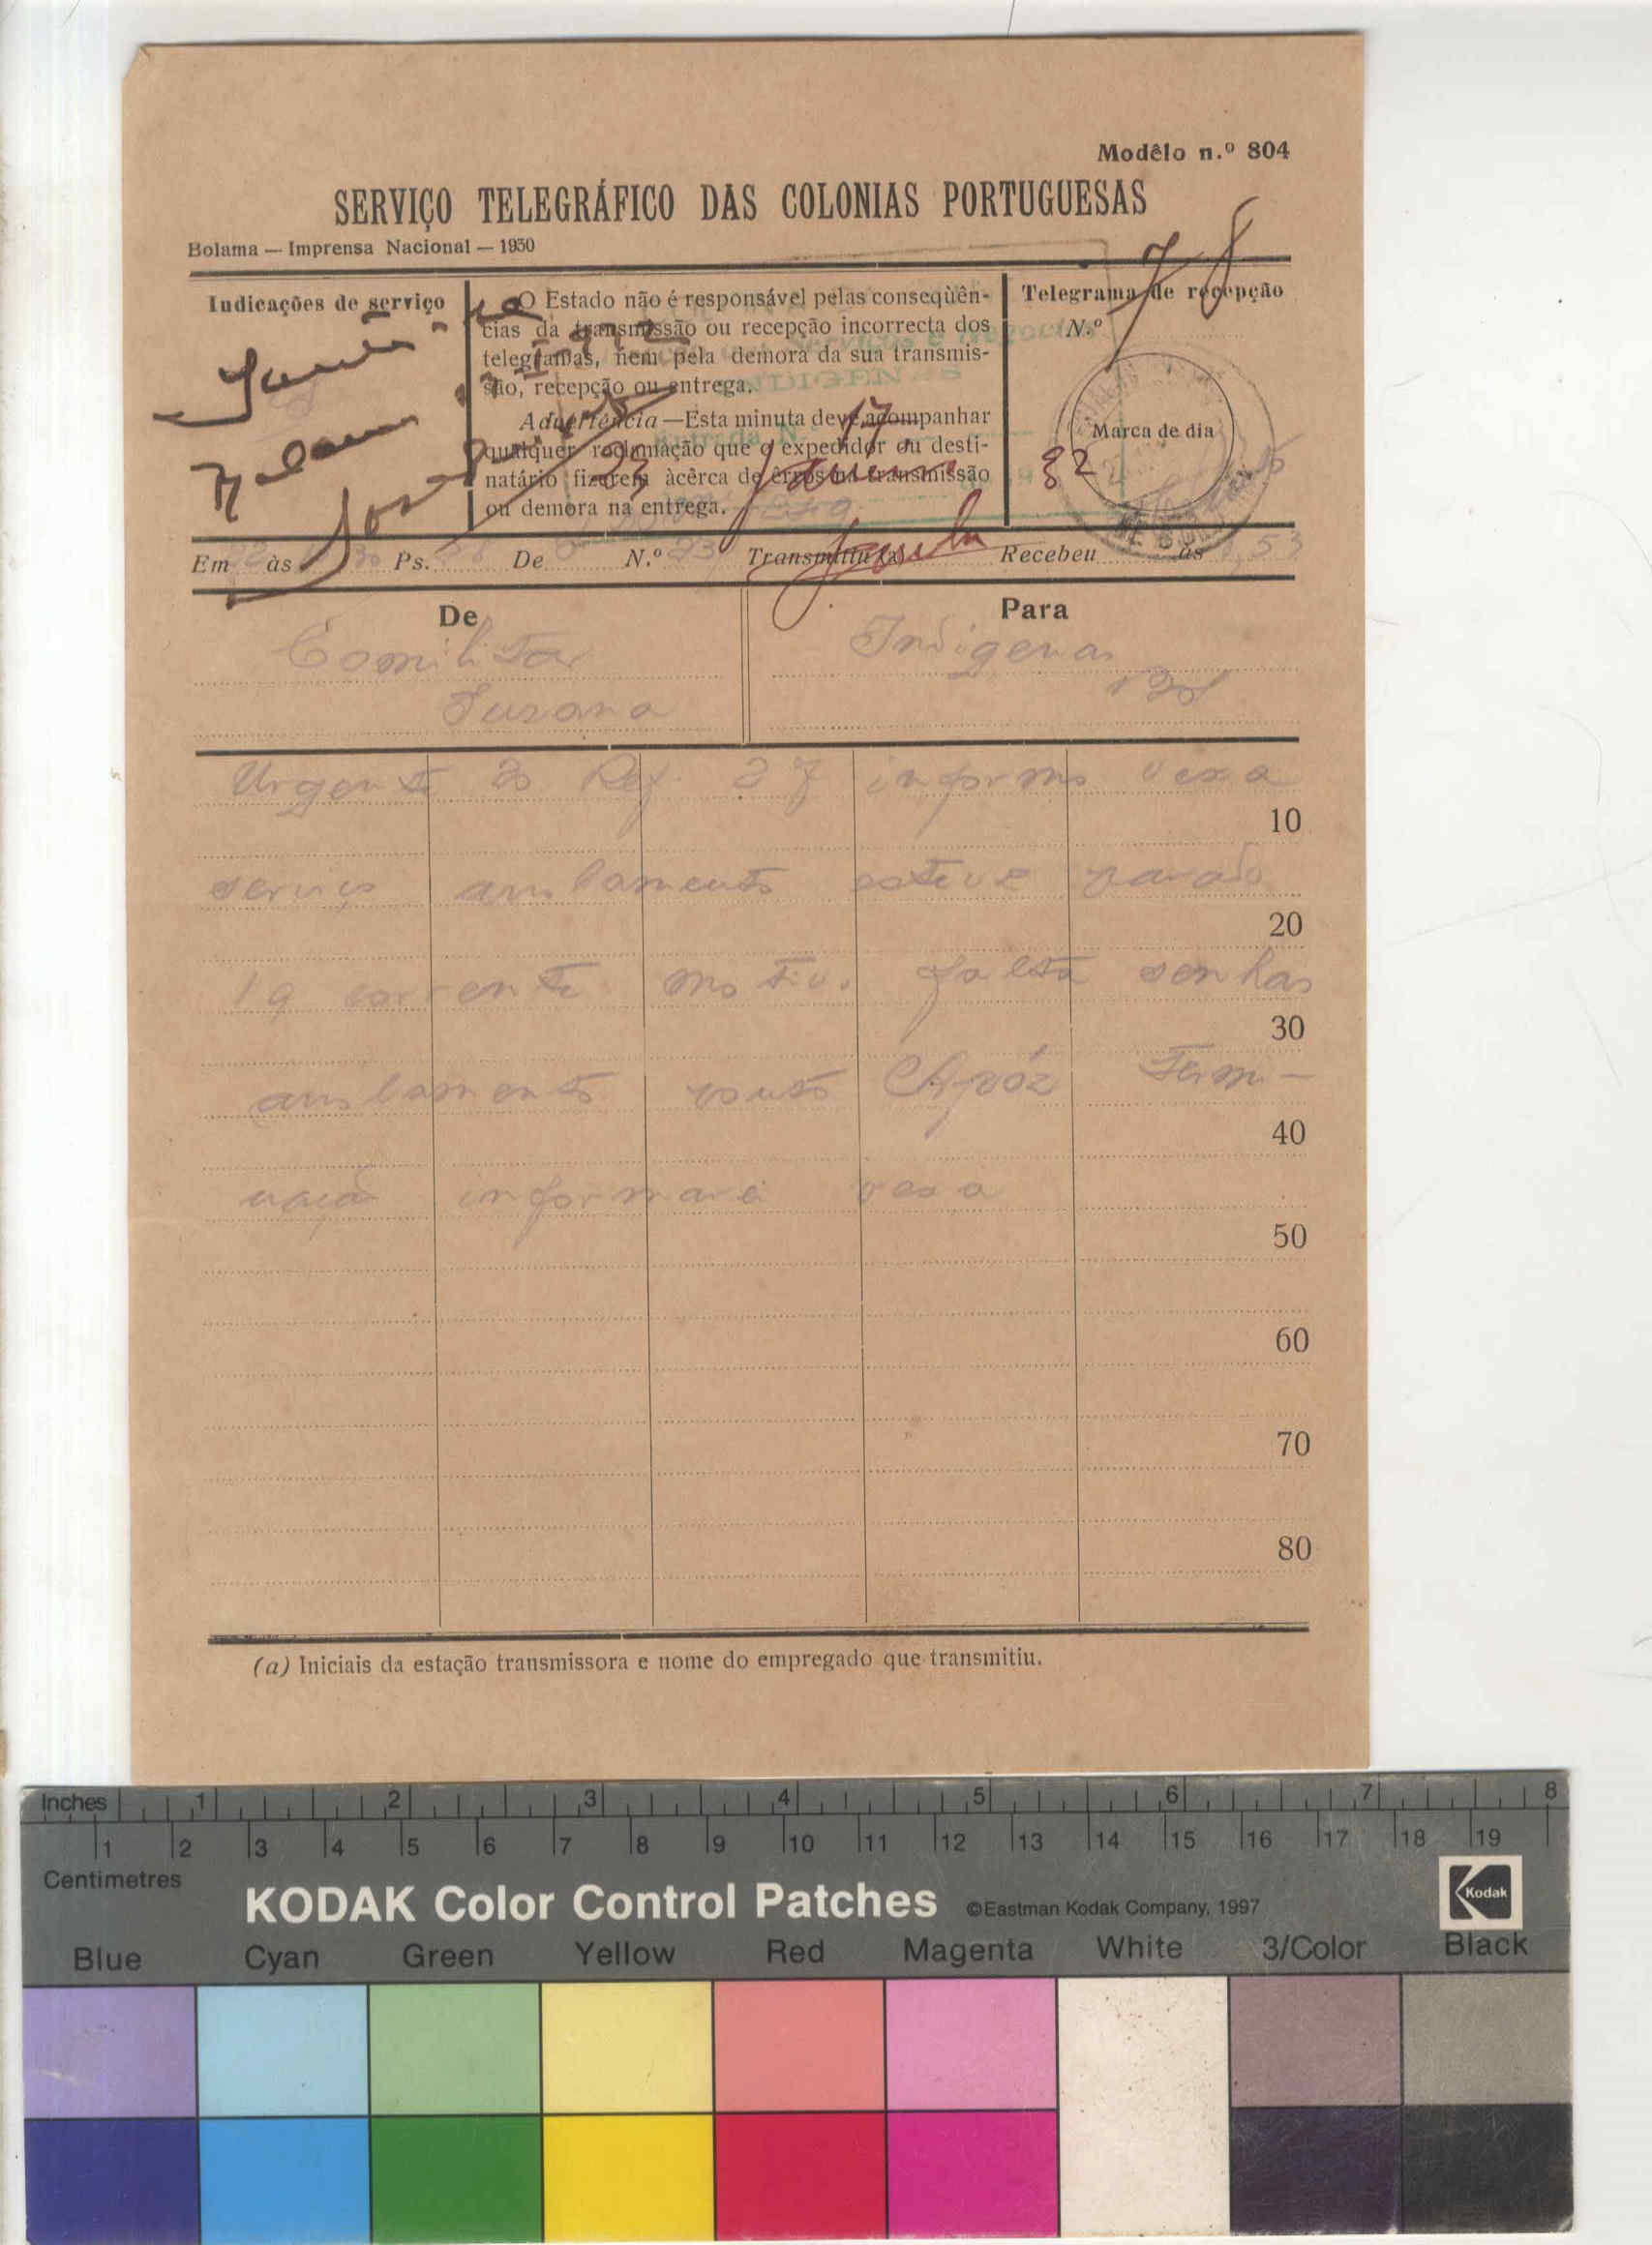 Modêlo n.º 804
SERVIÇO TELEGRÁFICO DAS COLONIAS PORTUGUESAS
Bolama — Imprensa Nacional — 1930
7/8
Indicações de serviço
O Estado não é responsável pelas conseqüên-
cias da transmissão ou recepção incorrecta dos
telegramas, nem pela demora da sua transmis-
são, recepção ou entrega.
Advertência—Esta minuta deve acompanhar
qualquer reclamação que o expedidor ou desti-
natário fizerem àcêrca de êrros na transmissão
ou demora na entrega.
Telegrama de recepção
N.º
Marca de dia
INDIGENAS
17
23 Janeiro
82
Em 22 às 30 Ps. De N.º 23 Transmitiu (a) Recebeu às 53
De
Comilitar
Suzana
Para
Indigenas
Urgente 20 Ref. 27 informo vexa
10
serviço arrolamento esteve parado
20
19 corrente motivo falta senhas
30
arrolamento ponto Apóz termi-
40
nação informarei vexa
50
60
70
80
(a) Iniciais da estação transmissora e nome do empregado que transmitiu.
Inches 1 2 3 4 5 6 7 8
1 2 3 4 5 6 7 8 9 10 11 12 13 14 15 16 17 18 19
Centimetres
KODAK Color Control Patches ©Eastman Kodak Company, 1997
Kodak
Blue Cyan Green Yellow Red Magenta White 3/Color Black